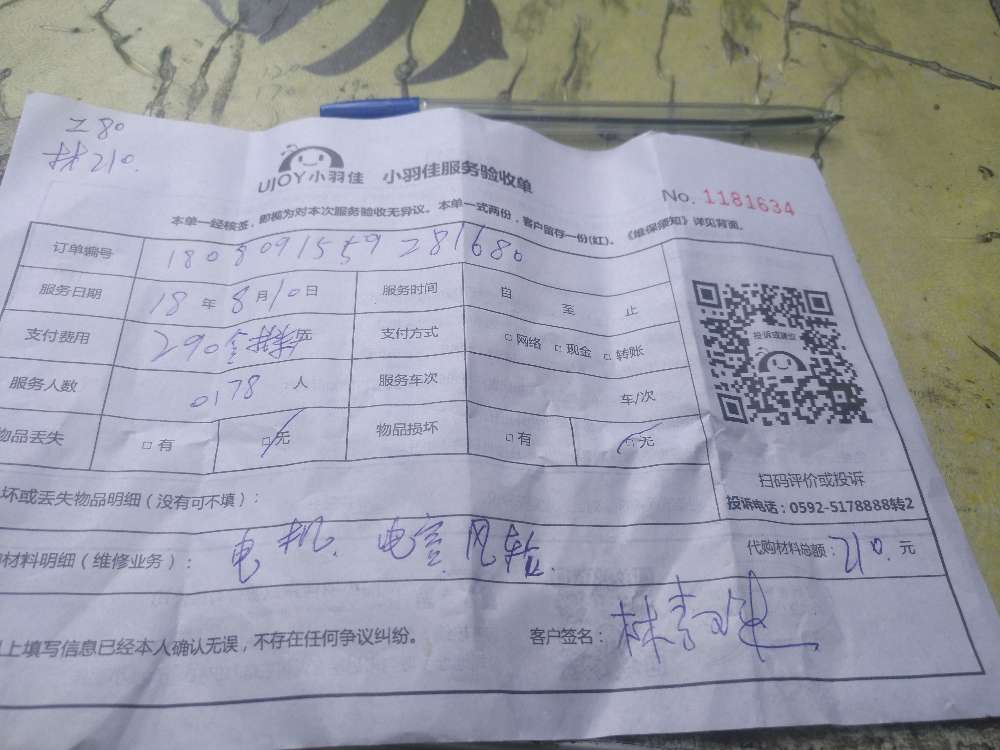 工80
材210.
UJOY小羽佳 小羽佳服务验收单
No. 1181634
本单一经核签，即视为对本次服务验收无异议。本单一式两份，客户留存一份(红)。《维保须知》详见背面。
订单编号 1808091559281680
服务日期 18 年 8 月 10 日 服务时间 自 至 止
支付费用 290 元 支付方式 □网络 □现金 □转账
投诉或建议
服务人数 0178 人 服务车次 车/次
物品丢失 □有 □无 物品损坏 □有 □无
扫码评价或投诉
投诉电话：0592-5178888转2
坏或丢失物品明细（没有可不填）：
材料明细（维修业务）： 电机、电容 风轮. 代购材料总额：210. 元
上填写信息已经本人确认无误，不存在任何争议纠纷。 客户签名：